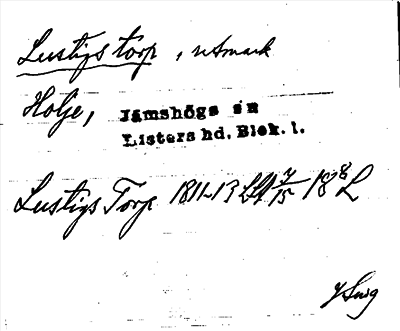 Lustigs torp, utmark
Holje, Jämshögs sn
Listers hd. Blek. l.
Lustigs Torp 1811-13 7/15